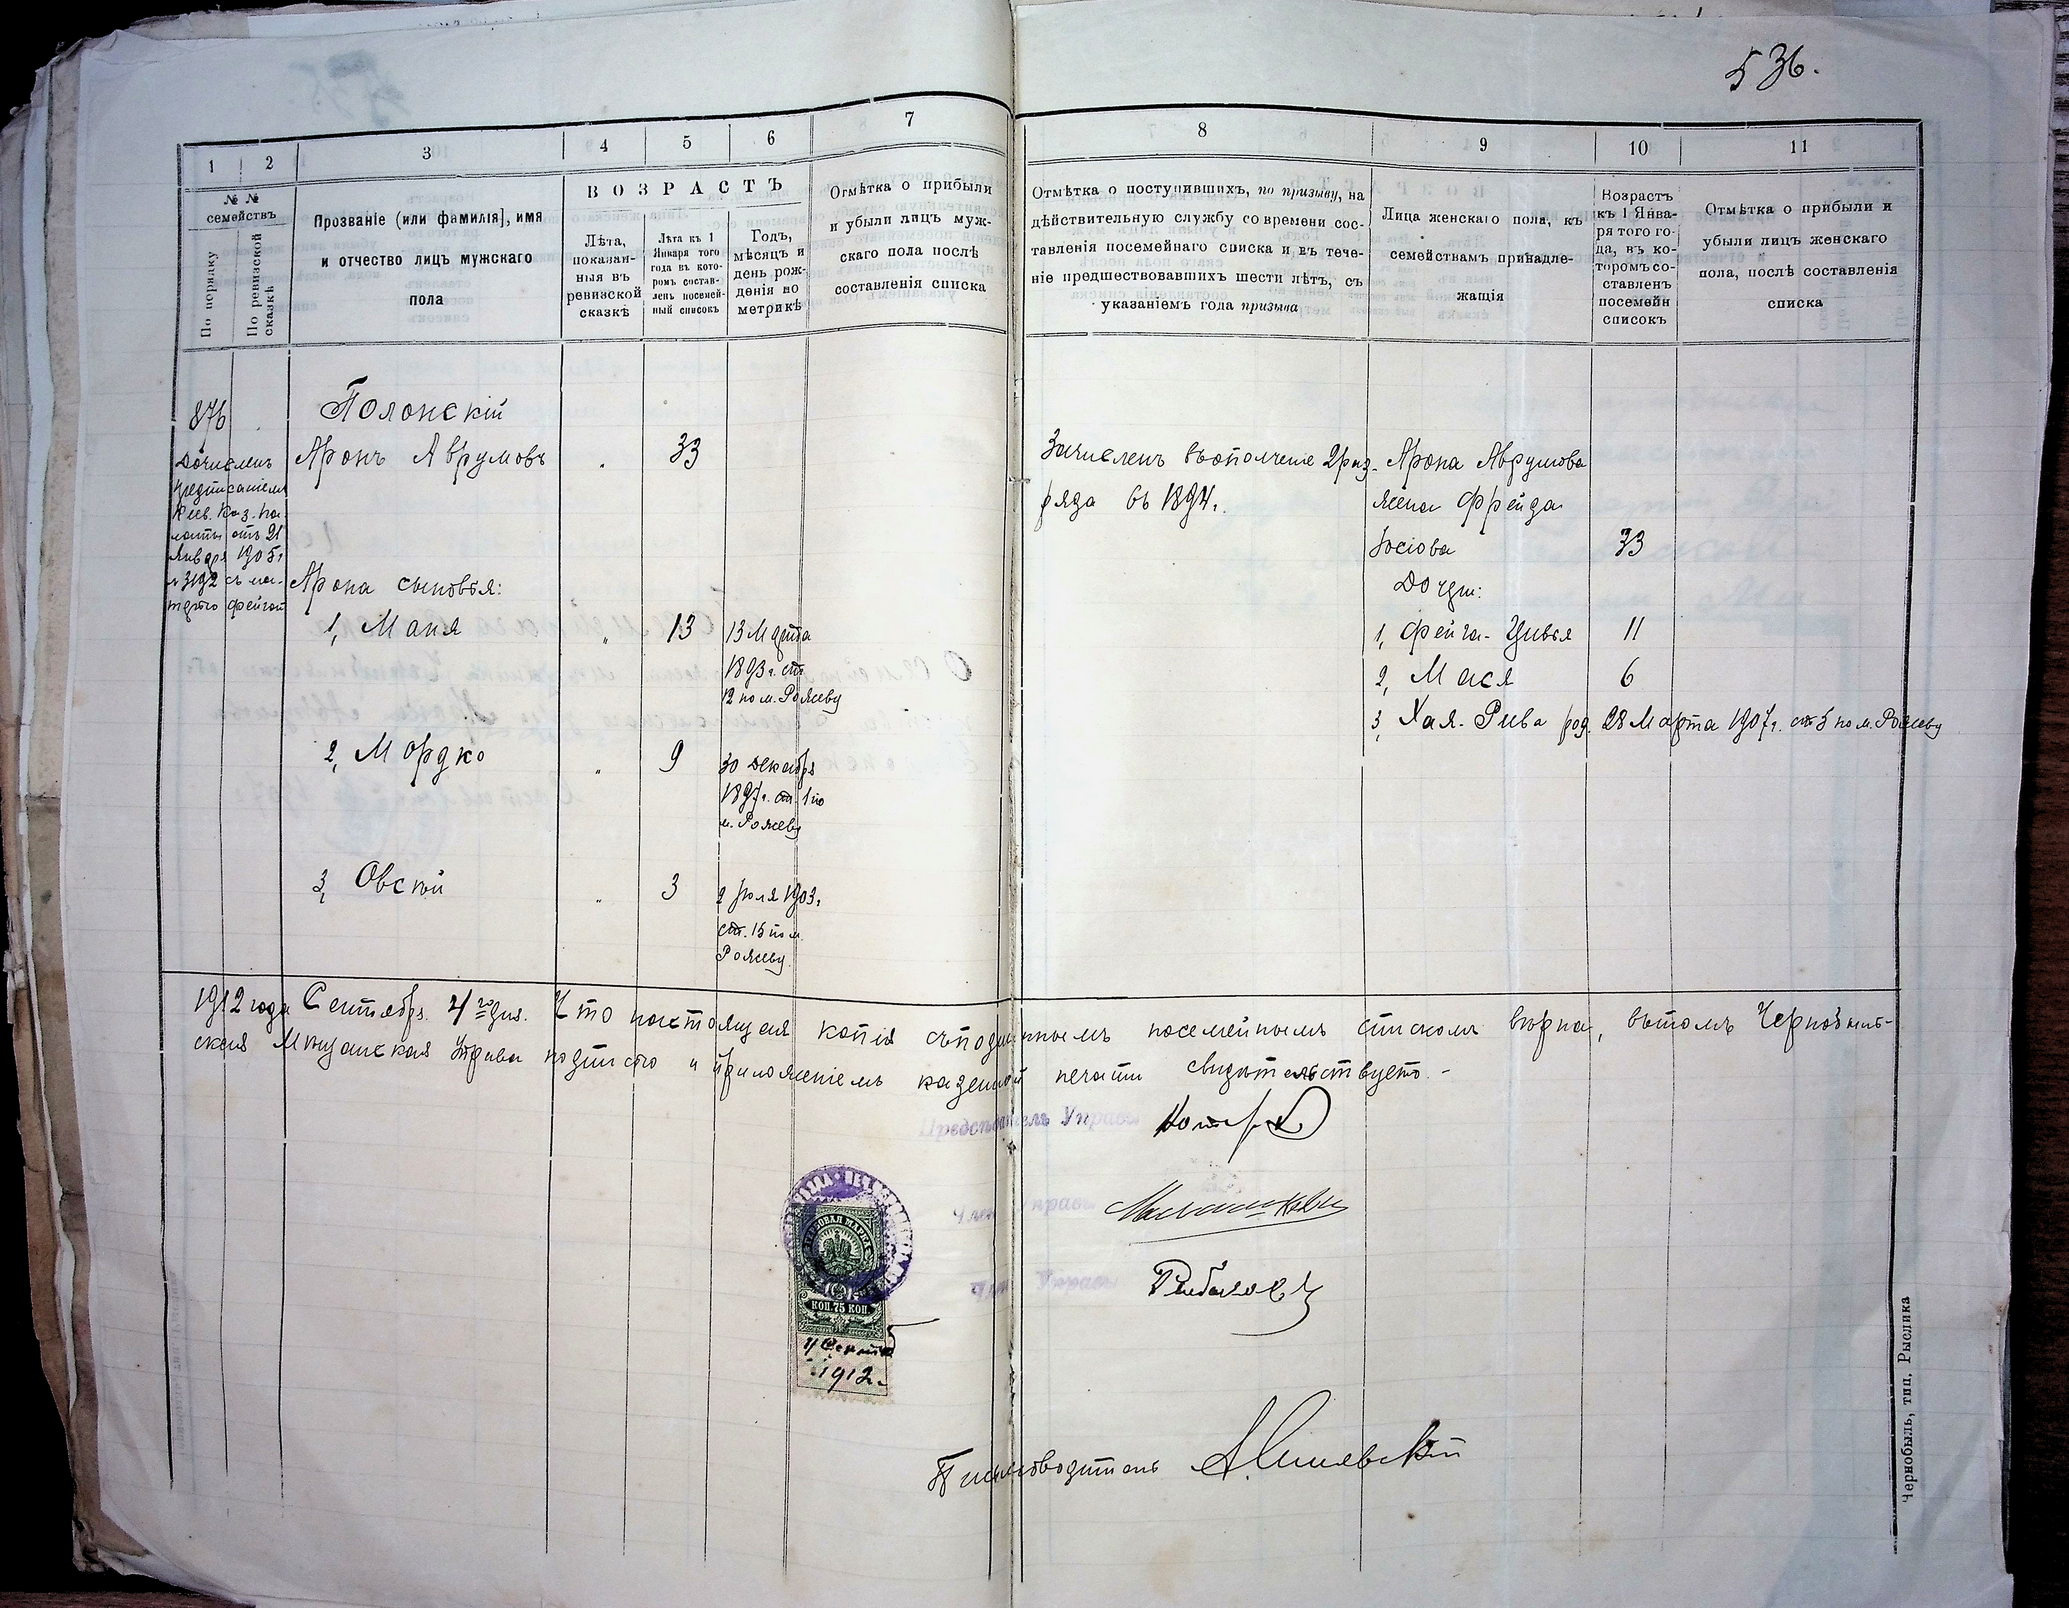 536.
1
2
3
4
5
6
7
8
9
10
11
№ №
семействъ
По порядку
По ревизской сказкѣ
Прозваніе (или фамилія), имя
и отчество лицъ мужскаго
пола
ВОЗРАСТЪ
Лѣта,
показан-
ныя въ
ревизской
сказкѣ
Лѣта къ 1
Января того
года въ кото-
ромъ состав-
ленъ посемей-
ный списокъ
Годъ,
мѣсяцъ и
день рож-
денія по
метрикѣ
Отмѣтка о прибыли
и убыли лицъ муж-
скаго пола послѣ
составленія списка
Отмѣтка о поступившихъ, по призыву, на
дѣйствительную службу со времени сос-
тавленія посемейнаго списка и въ тече-
ніе предшествовавшихъ шести лѣтъ, съ
указаніемъ года призыва
Лица женскаго пола, къ
семействамъ принадле-
жащія
Возрастъ
къ 1 Янва-
ря того го-
да, въ ко-
торомъ со-
ставленъ
посемейн
списокъ
Отмѣтка о прибыли и
убыли лицъ женскаго
пола, послѣ составленія
списка
876
Дочисленъ
предписаніемъ
Кіев. Каз. Па-
латы отъ 21
Января 1905 г
№ 3192 съ ма-
терью Фейгой
Полонскій
Аронъ Аврумовъ
33
Арона сыновья:
1, Маня
13
13 Марта
1893 г. ст
12 по м. Рожеву
2, Мордко
9
30 Декабря
1897 г. ст. 1 по
м. Рожеву
3, Овсій
3
2 Іюля 1903 г
ст. 15 по м.
Рожеву
Зачисленъ въ ополченіе 2 раз-
ряда въ 1894 г.
Арона Аврумова
жена Фрейда
Іосіова
33
Дочери:
1, Фейга-Цивья
11
2, Мася
6
3, Хая-Рива род. 28 Марта 1907 г. ст 5 по м. Рожеву
1912 года Сентября 4 го дня. Что настоящая копія съ подлиннымъ посемейнымъ спискомъ вѣрна, въ томъ Чернобыль-
ская Мѣщанская Управа подписью и приложеніемъ казенной печати свидѣтельствуетъ.-
Предсѣдатель Управы
Членъ Управы
Членъ Управы
ГЕРБОВАЯ МАРКА
КОП. 75 КОП.
4 Сентяб
1912.
Письмоводитель
Чернобыль, тип. Рыслика